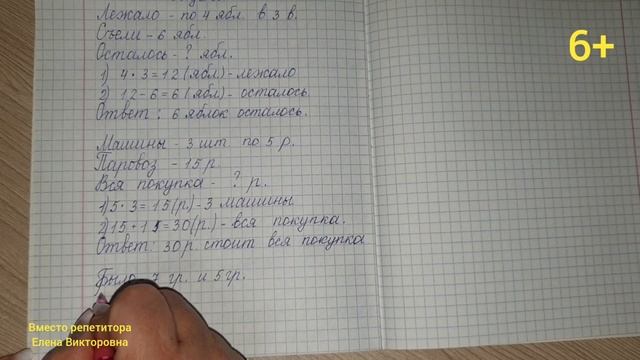 Лежало - по 4 ябл. в 3 в.
Съели - 6 ябл.
Осталось - ? ябл.
1) 4 · 3 = 12 (ябл) - лежало
2) 12 - 6 = 6 (ябл) - осталось.
Ответ : 6 яблок осталось.
Машины - 3 шт по 5 р.
Паровоз - 15 р
Вся покупка - ? р.
1) 5 · 3 = 15 (р.) - 3 машины
2) 15 + 15 = 30 (р.) - вся покупка.
Ответ: 30 р. стоит вся покупка
Было 7 гр. и 5 гр.
6+
Вместо репетитора
Елена Викторовна